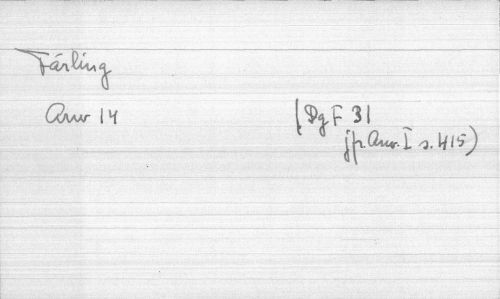 Tärling
Arw 14
(Dg F 31
jfr Arw. I s. 415)